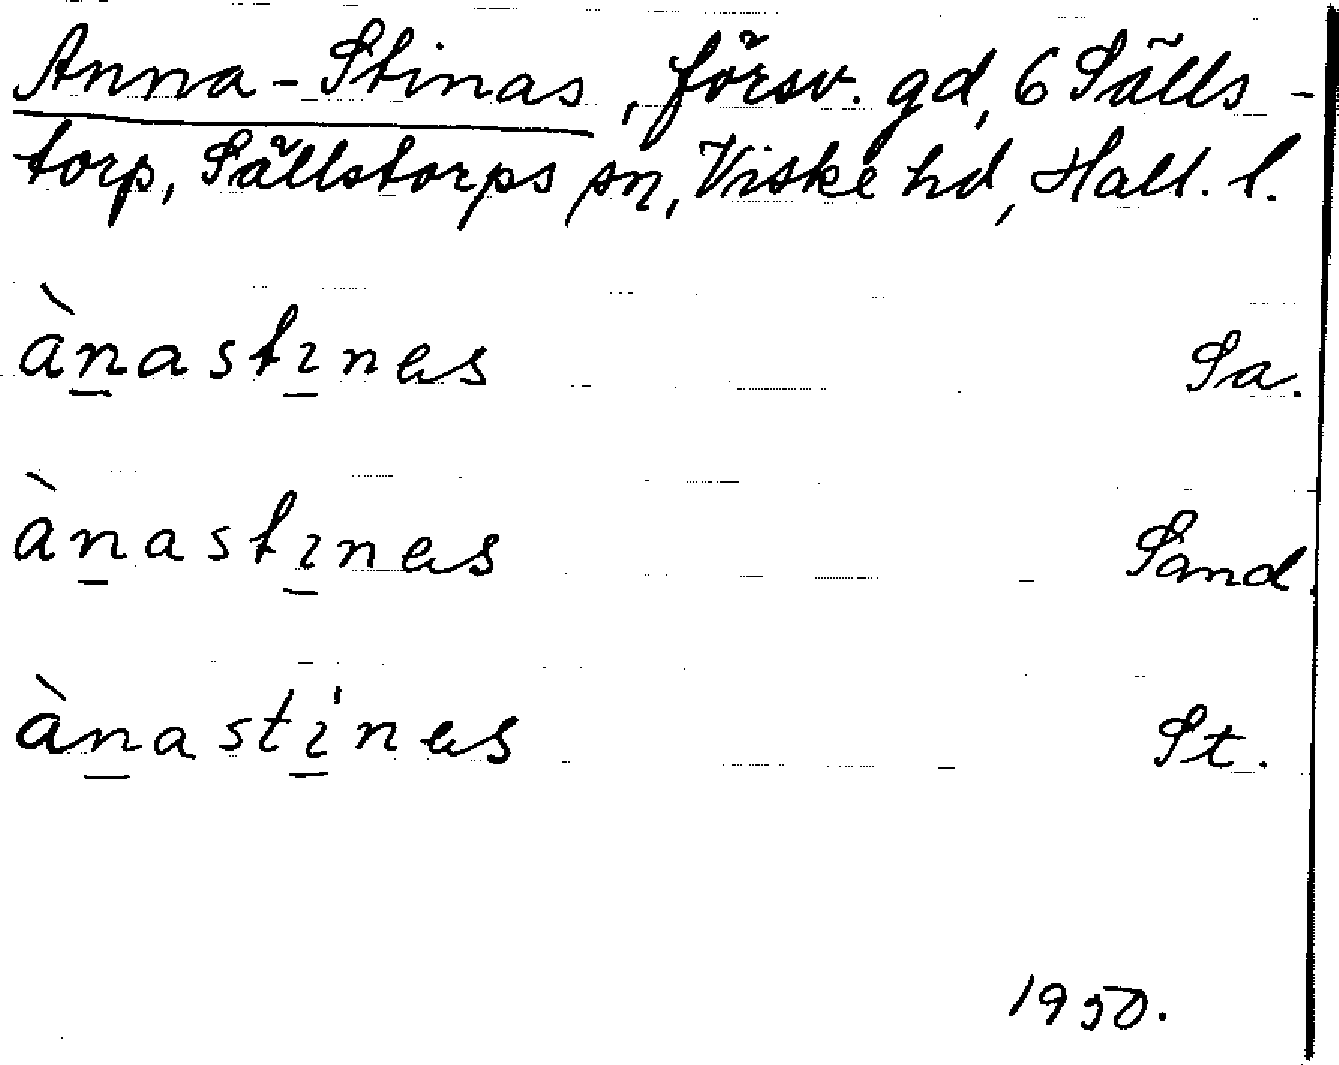 Anna-Stinas, försv. gd, 6 Sälls-
torp, Sällstorps sn, Viske hd, Hall. l.
ànastınas Sa.
ànastınas Sand.
ànastı'nas St.
1950.